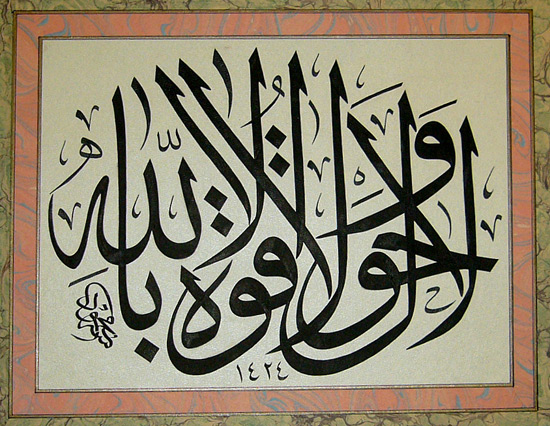 لا حول ولا قوة إلا بالله
١٤٢٤